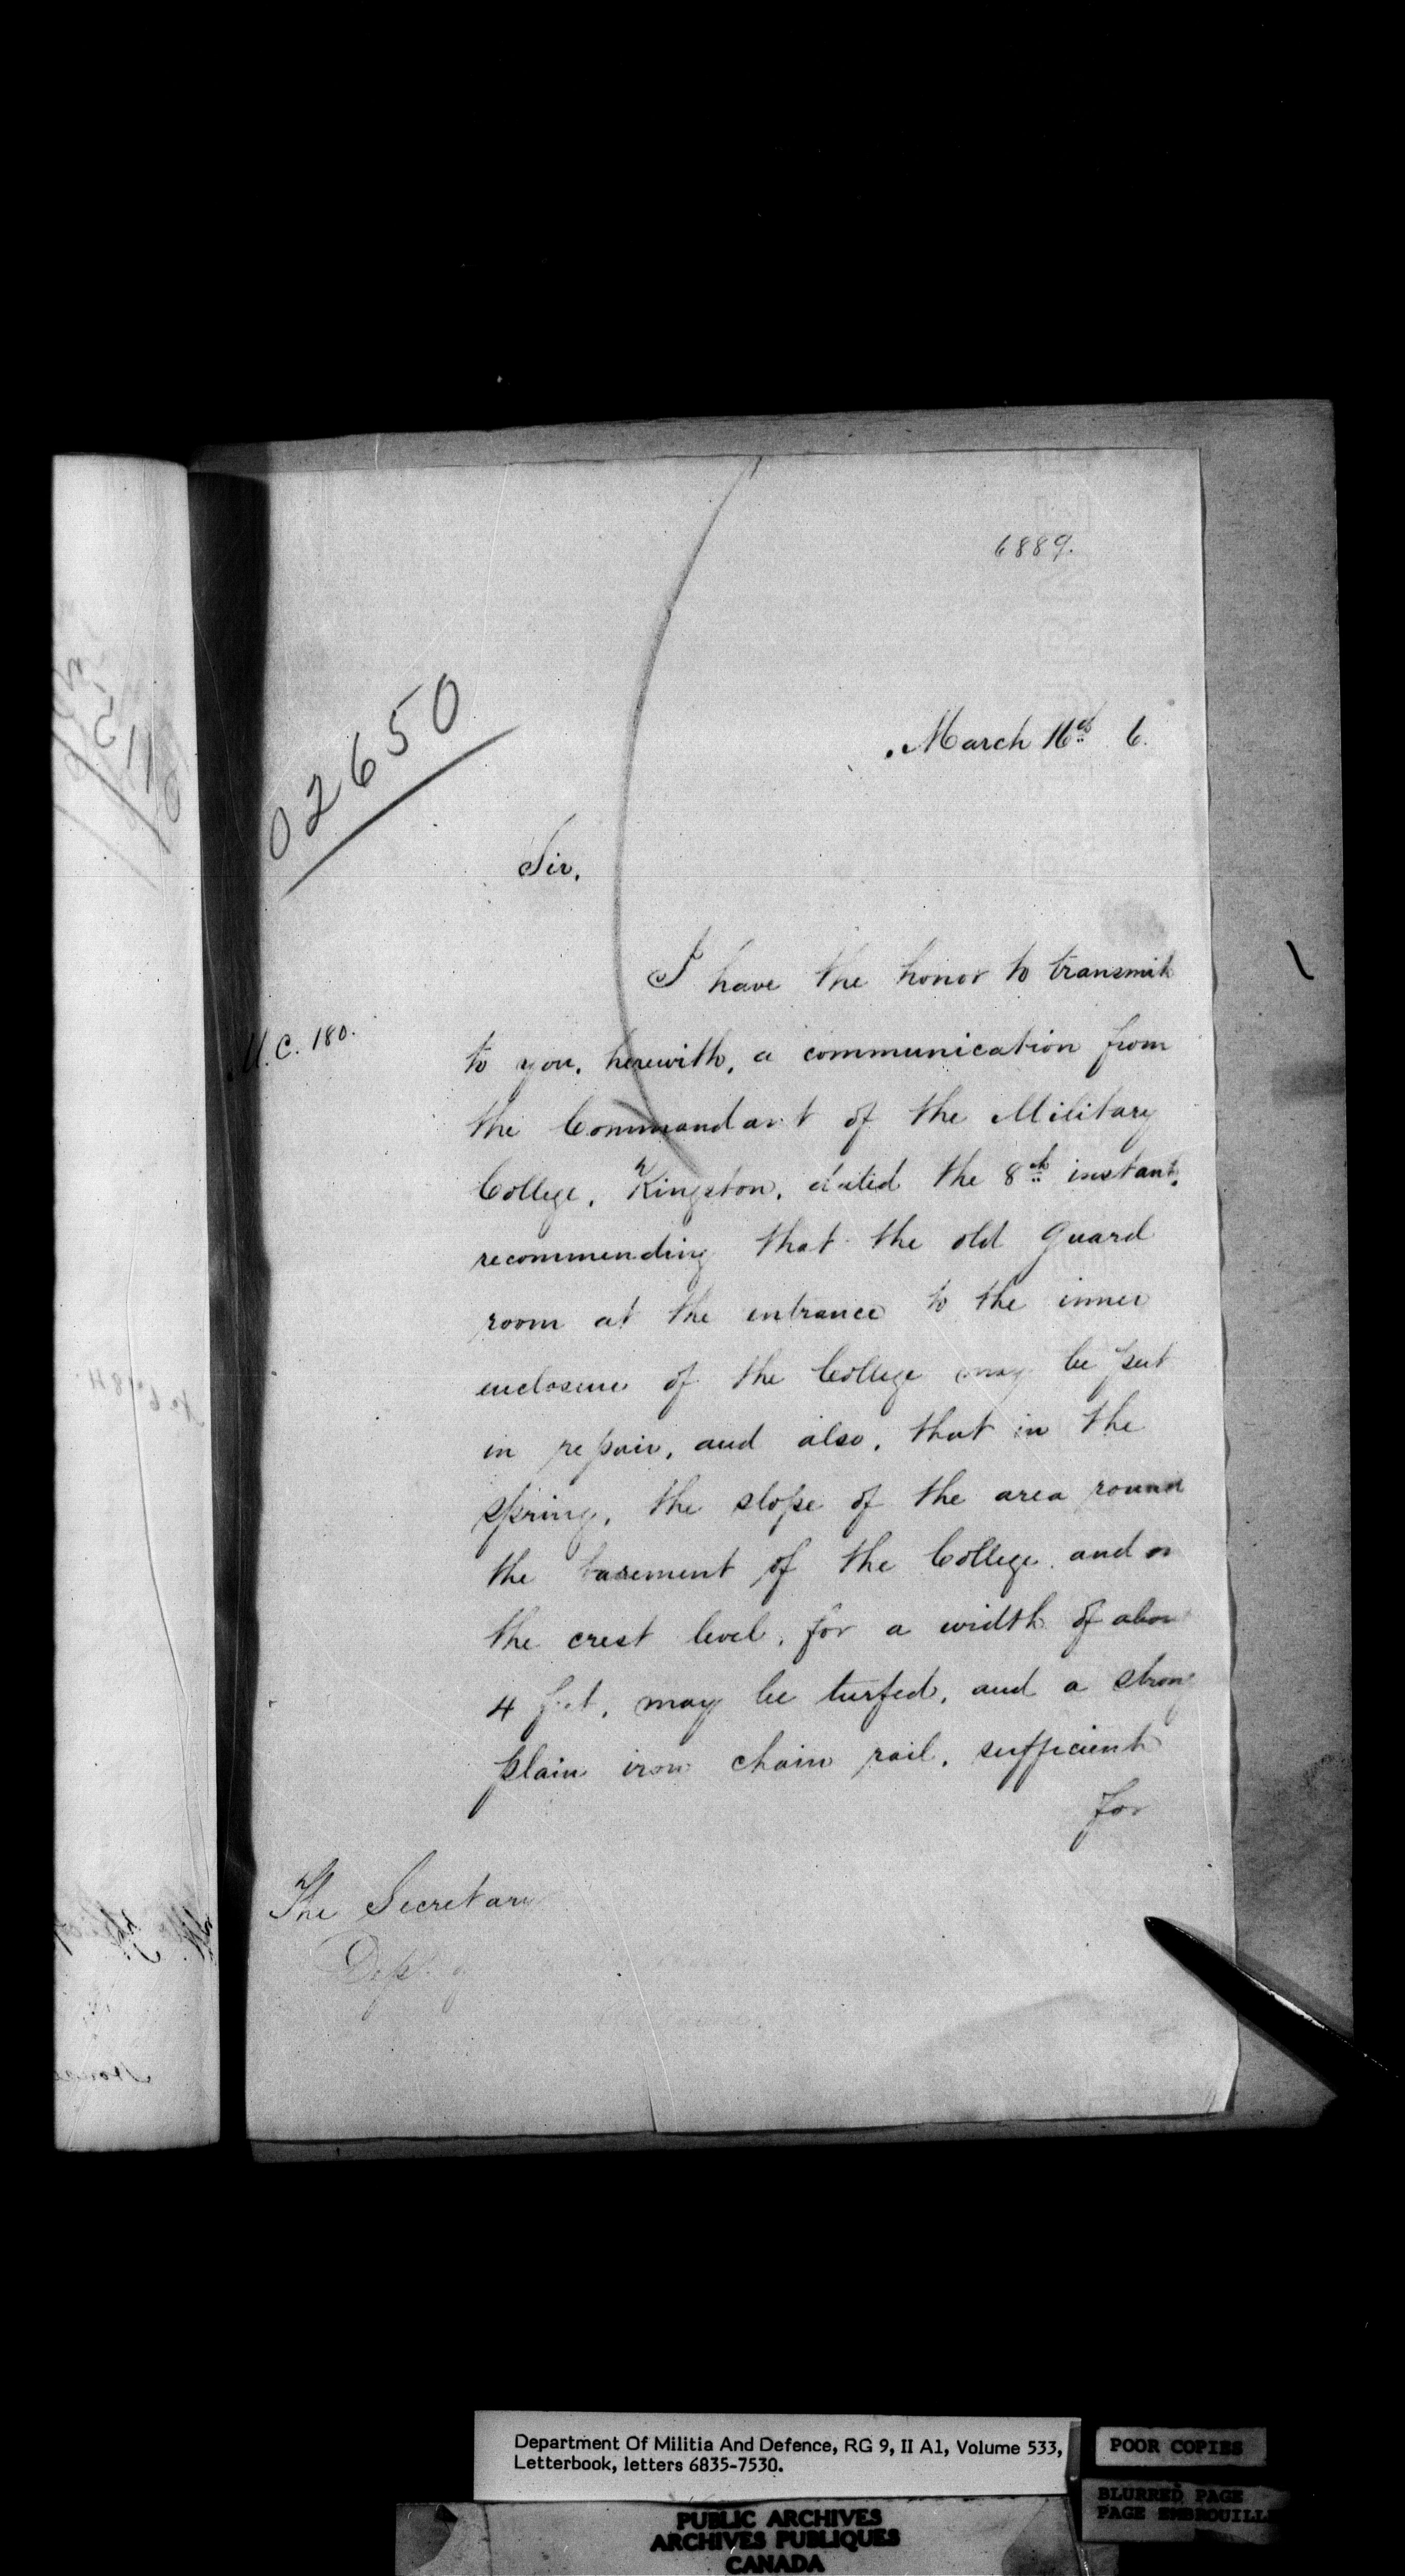 6889.
02650
March 16th 6.
Sir,
I have the honor to transmit
M.C. 180.
to you, herewith, a communication from
the Commandant of the Military
College, Kingston, dated the 8th instant,
recommending that the old Guard
room at the entrance to the inner
enclosure of the College may be put
in repair, and also, that in the
spring, the slope of the area round
the basement of the College and on
the crest level, for a width of abou
4 feet, may be turfed, and a strong
plain iron chain rail, sufficient
for
The Secretary
Dept. of
Department Of Militia And Defence, RG 9, II A1, Volume 533,
Letterbook, letters 6835-7530.
POOR COPIES
BLURRED PAGE
PAGE EMBROUILL
PUBLIC ARCHIVES
ARCHIVES PUBLIQUES
CANADA